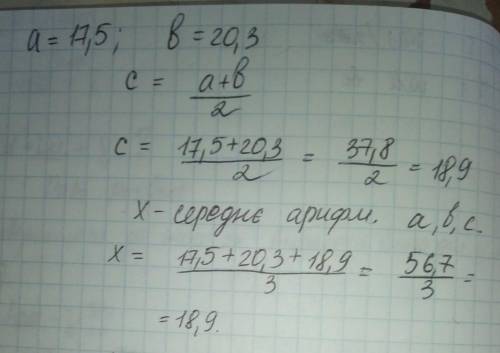 a = 17,5; b = 20,3
c = a+b / 2
c = 17,5+20,3 / 2 = 37,8 / 2 = 18,9
x - середнє арифм. a, b, c.
x = 17,5+20,3+18,9 / 3 = 56,7 / 3 =
= 18,9.